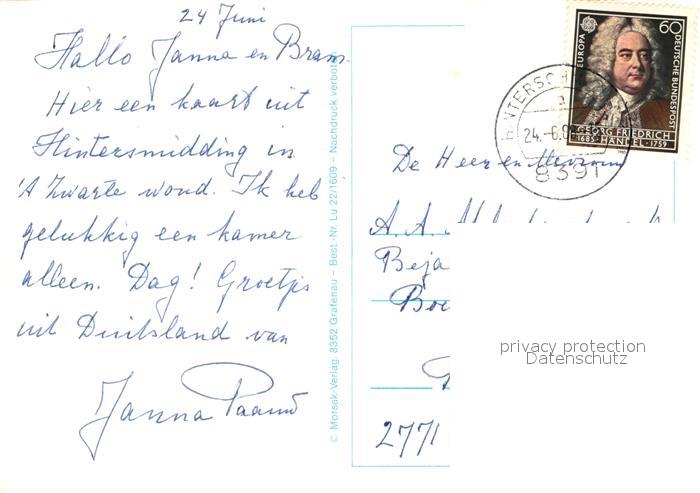 24 Juni
Hallo Janna en Bram.
Hier een kaart uit
Hintersmidding in
't Zwarte woud. Ik heb
gelukkig een kamer
alleen. Dag! Groetjes
uit Duitsland van
Janna
© Morsak-Verlag, 8352 Grafenau – Best.-Nr. Lu 22/1609 – Nachdruck verboten
EUROPA
60
DEUTSCHE BUNDESPOST
GEORG FRIEDRICH
1685 · HÄNDEL · 1759
24.-6.
8391
De Heer en Mevrouw
A. A.
Beja
Boe
2771
privacy protection
Datenschutz